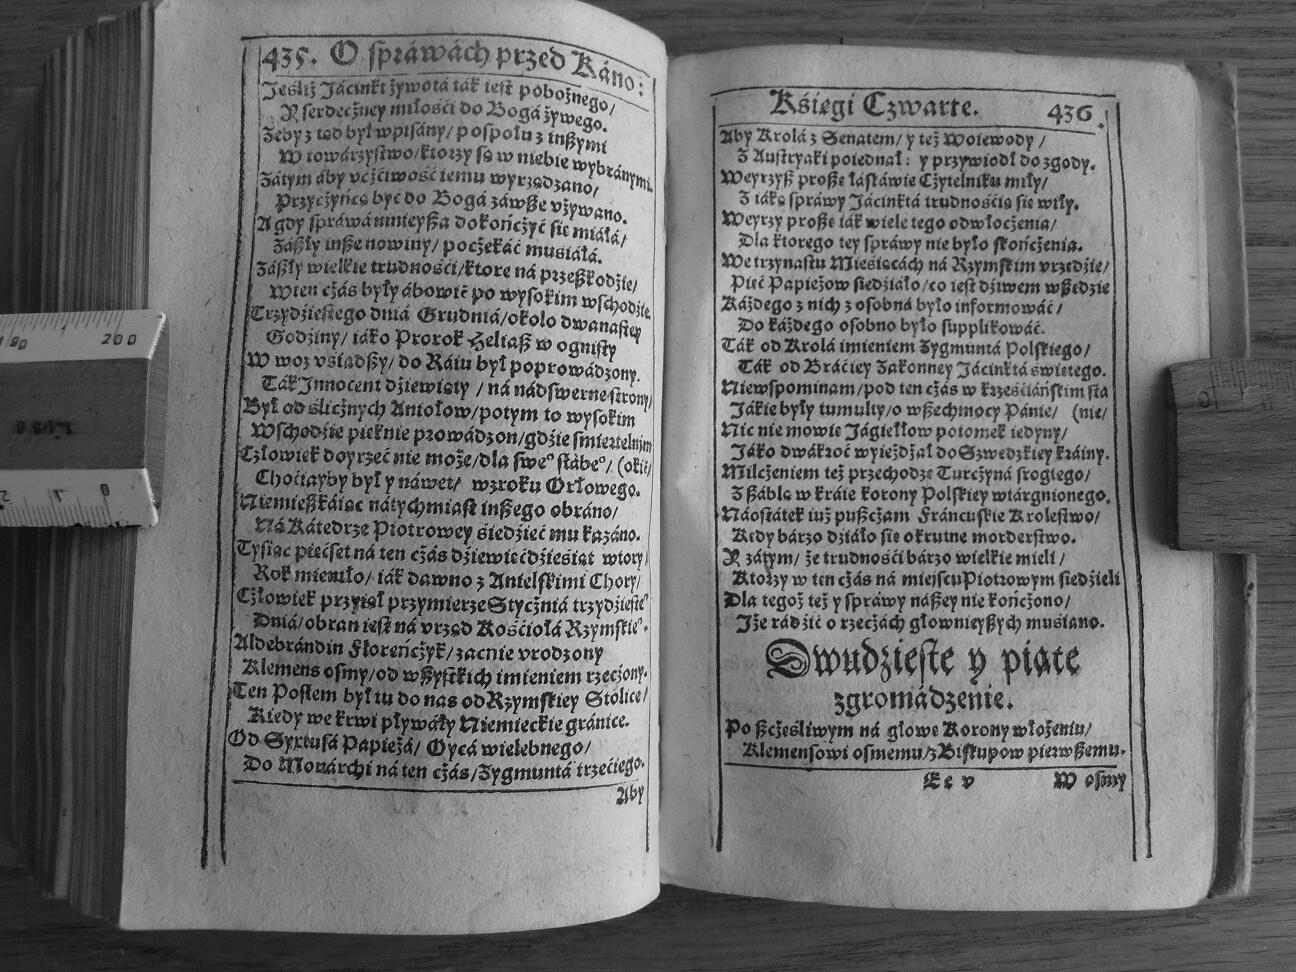 435. O spráwách przed Káno:
Jesliż Jácinkt żywotá ták iest pobożnego/
Y serdecżney miłośći do Bogá żywego.
Żeby z tąd był wpisány/ pospołu z inßymi
W towárzystwo/ktorzy są w niebie wybránymi.
Zátym áby vcżćiwość iemu wyrządzano/
Przycżyńcą być do Bogá záwße vżywano.
A gdy spráwá mnieyßa dokończyć się miáłá/
Záßły inße nowiny/ pocżekáć musiáłá.
Záßły wielkie trudnośći/ktore ná przeßkodźie/
W ten cżás były ábowiẽ po wysokim wschodźie.
Trzydźiestego dniá Grudniá/około dwanastey
Godźiny/ iáko Prorok Heliaß w ognisty
W woz vsiadßy/ do Ráiu był poprowádzony.
Ták Innocent dźiewiąty / ná nádswerne strony/
Był od slicżnych Aniołow/potym to wysokim
Wschodźie pieknie prowádzon/gdźie smiertelnym
Człowiek doyrzeć nie może/dla sweº słábeº/ (okiẽ/
Choćiayby był y náwet/ wzroku Orłowego.
Niemießkáiąc nátychmiast inßego obráno/
Ná Kátedrze Piotrowey siedźieć mu kazáno.
Tysiąc pięćset ná ten cżás dźiewiećdźieśiąt wtory/
Rok mieniło/ iák dawno z Anielskimi Chory/
Człowiek przyiął przymierze Stycżniá trzydźiesteº
Dniá/obran iest ná vrząd Kośćiołá Rzymskieº.
Aldebrándin Florenćżyk/ zacnie vrodzony
Klemens osmy/od wßystkich imieniem rzecżony.
Ten Posłem był tu do nas od Rzymskiey Stolice/
Kiedy we krwi pływáły Niemieckie gránice.
Od Syxtusá Papieżá/ Oycá wielebnego/
Do Monárchi ná ten cżás/Zygmuntá trzećiego.
Aby
Kśięgi Czwarte. 436.
Aby Krolá z Senatem/ y też Woiewody /
Z Austryaki poiednał: y przywiodł do zgody.
Weyrzyß proßę łáskáwie Czytelniku miły/
Z iáką spráwy Jácinktá trudnośćią się wiły.
Weyrzy proßę iák wiele tego odwłocżenia/
Dla ktorego tey spráwy nie było skończenia.
We trzynastu Mieśiącách ná Rzymskim vrzędźie/
Pięć Papieżow siedźiáło/co iest dźiwem wßędźie
Káżdego z nich z osobná było informowáć/
Do káżdego osobno było supplikowáć.
Ták od Krolá imieniem Zygmuntá Polskiego/
Ták od Bráćiey Zakonney Jácinktá świętego.
Niewspominam/pod ten cżás w krześćiáńskim sta
Jákie były tumulty/o wßechmocy Pánie/ (nie/
Nic nie mowię Jágiełłow potomek iedyny/
Jáko dwákroć wyieżdżał do Szwedzkiey kráiny.
Milcżeniem też przechodzę Turcżyná srogiego/
Z ßáblą w kráie Korony Polskiey wtárgnionego.
Náostátek iuż pußcżam Fráncuskie Krolestwo/
Kędy bárzo dźiáło się okrutne morderstwo.
Y zátym/ że trudnośći bárzo wielkie mieli /
Ktorzy w ten cżás ná mieyscu Piotrowym siedźieli
Dla tegoż też y spráwy náßey nie kończono/
Jże rádźić o rzecżách głownieyßych musiano.
Dwudźieste y piąte
zgromádzenie.
Po ßcżęśliwym ná głowę Korony włożeniu/
Klemensowi osmemu/z Biskupow pierwßemu.
Ee v W osmy